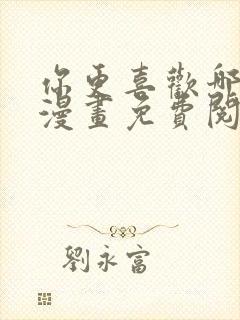 你更喜歡那
漫畫免費閱
劉永富